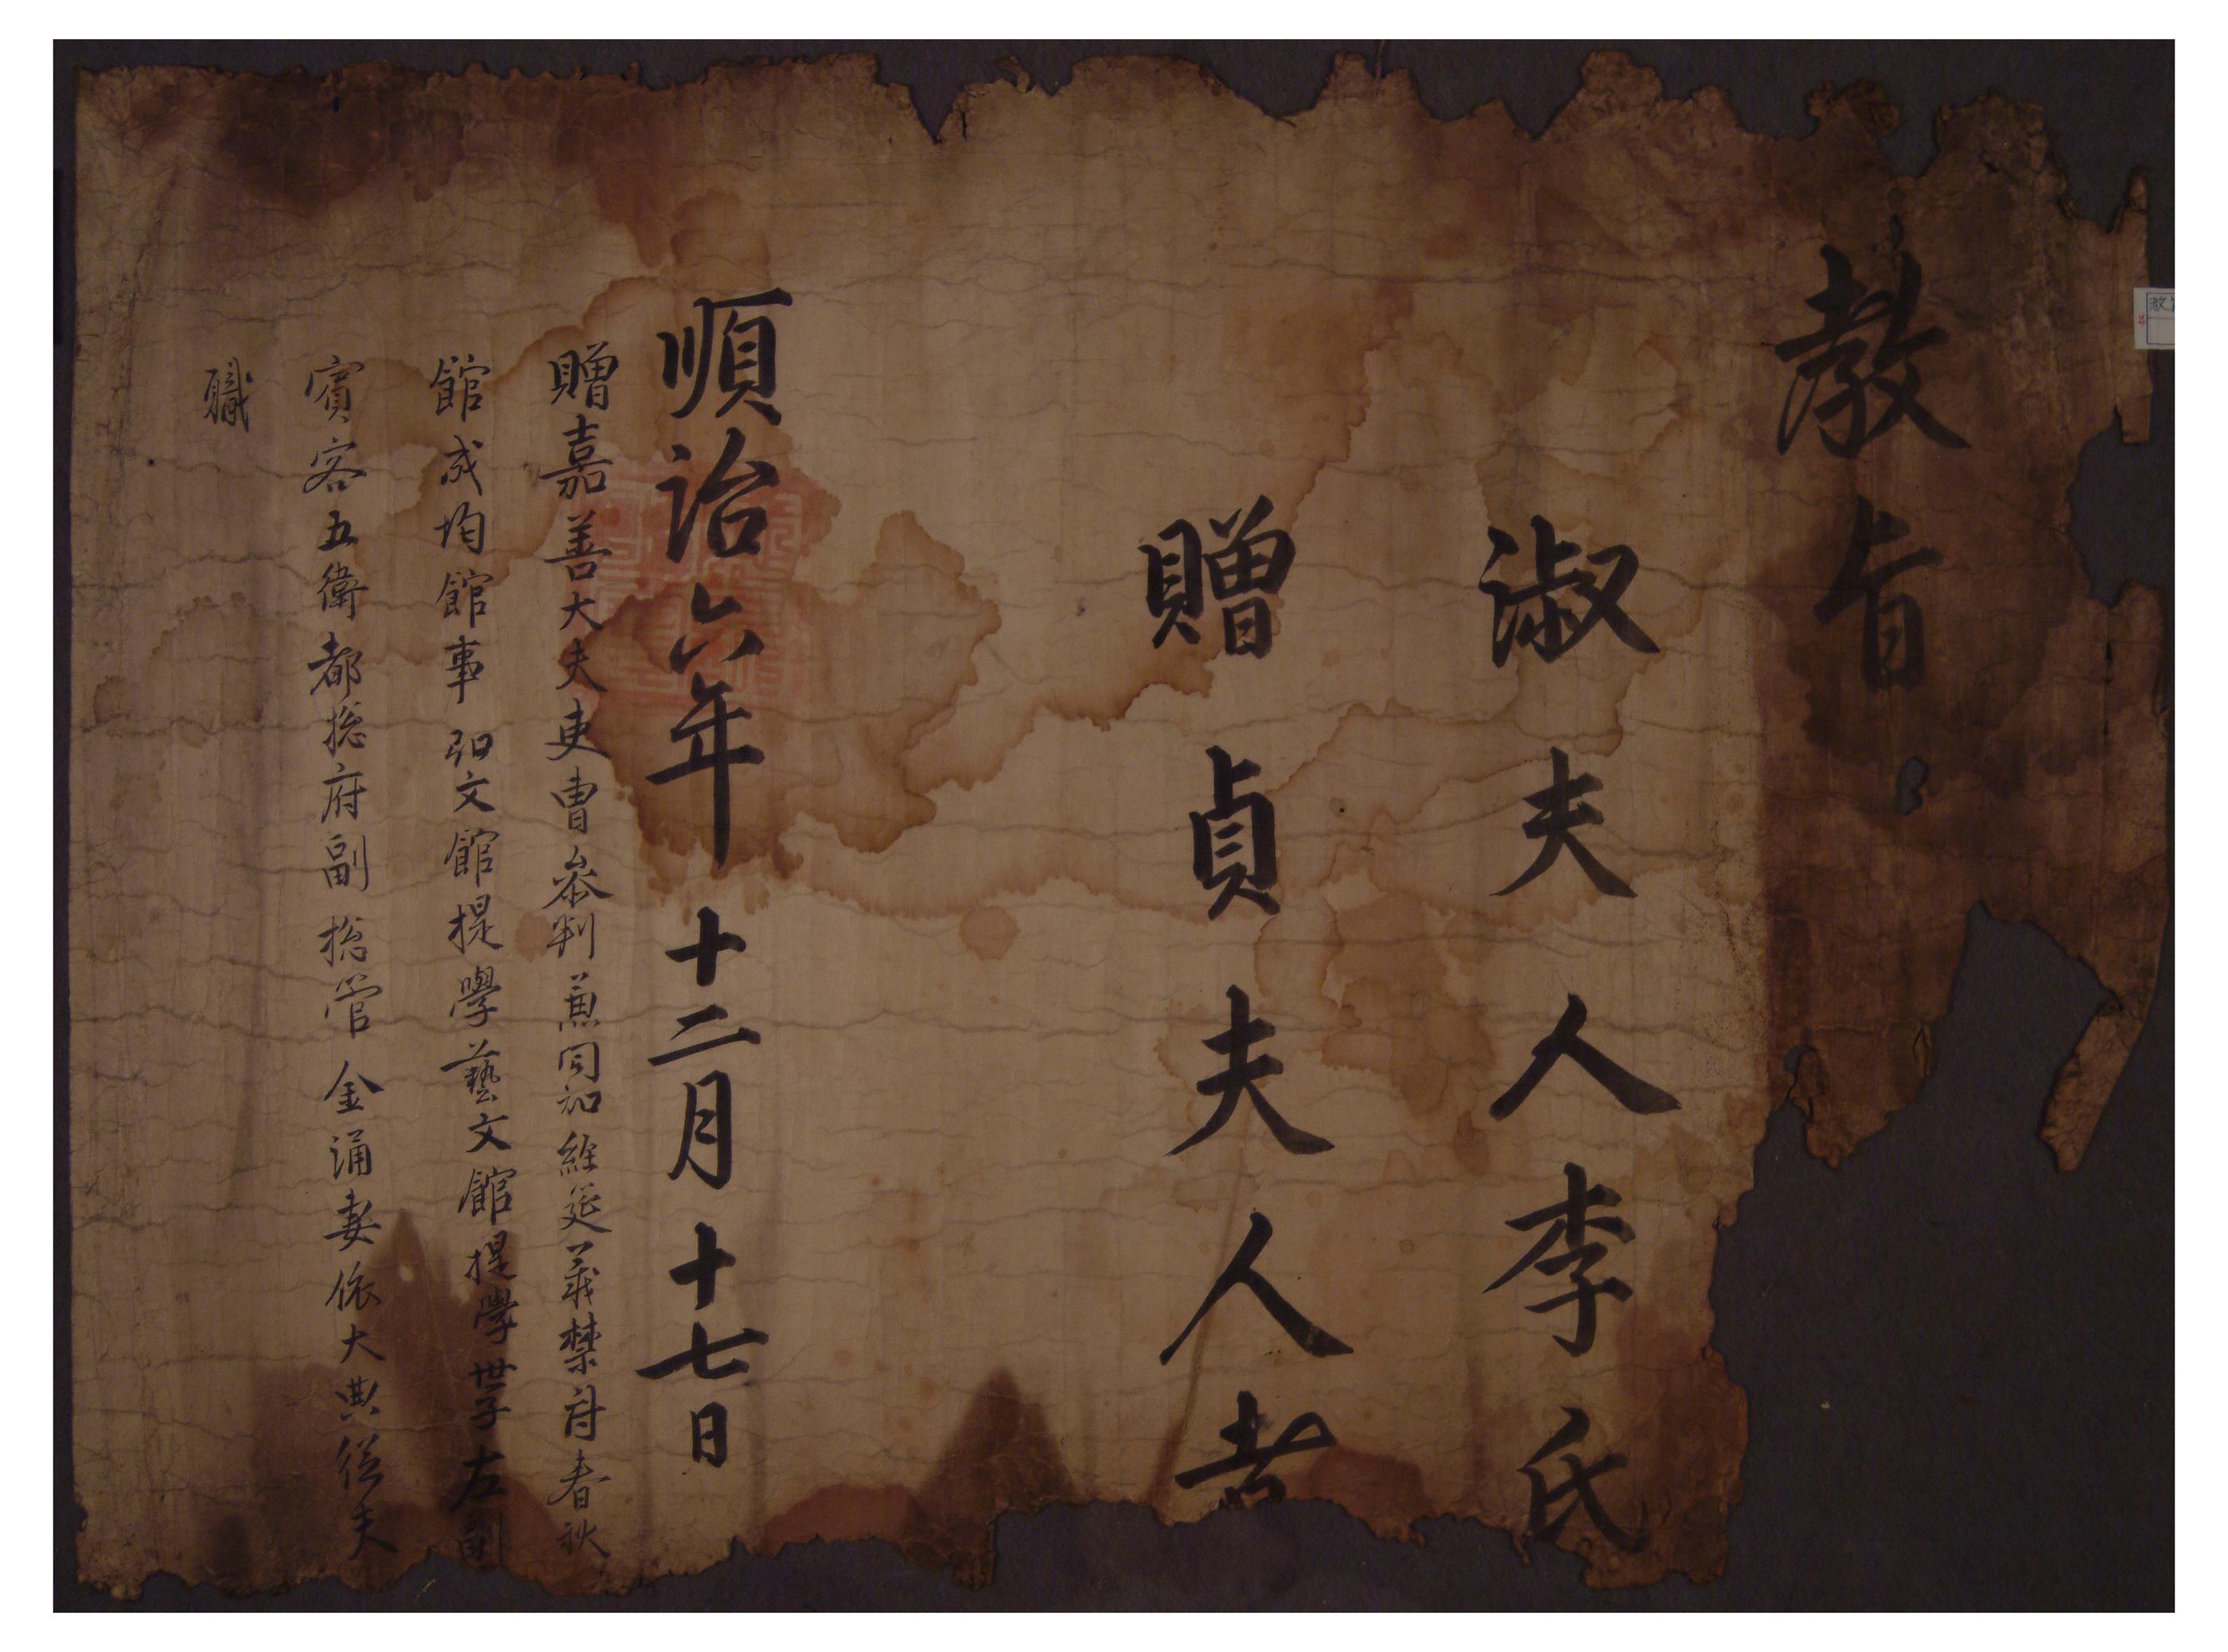 教旨
淑夫人李氏
贈貞夫人者
順治六年十二月十七日
贈嘉善大夫吏曹叅判兼同知經筵義禁府春秋
館成均館事弘文館提學藝文館提學世子左副
賓客五衛都摠府副摠管金涌妻依大典從夫
職